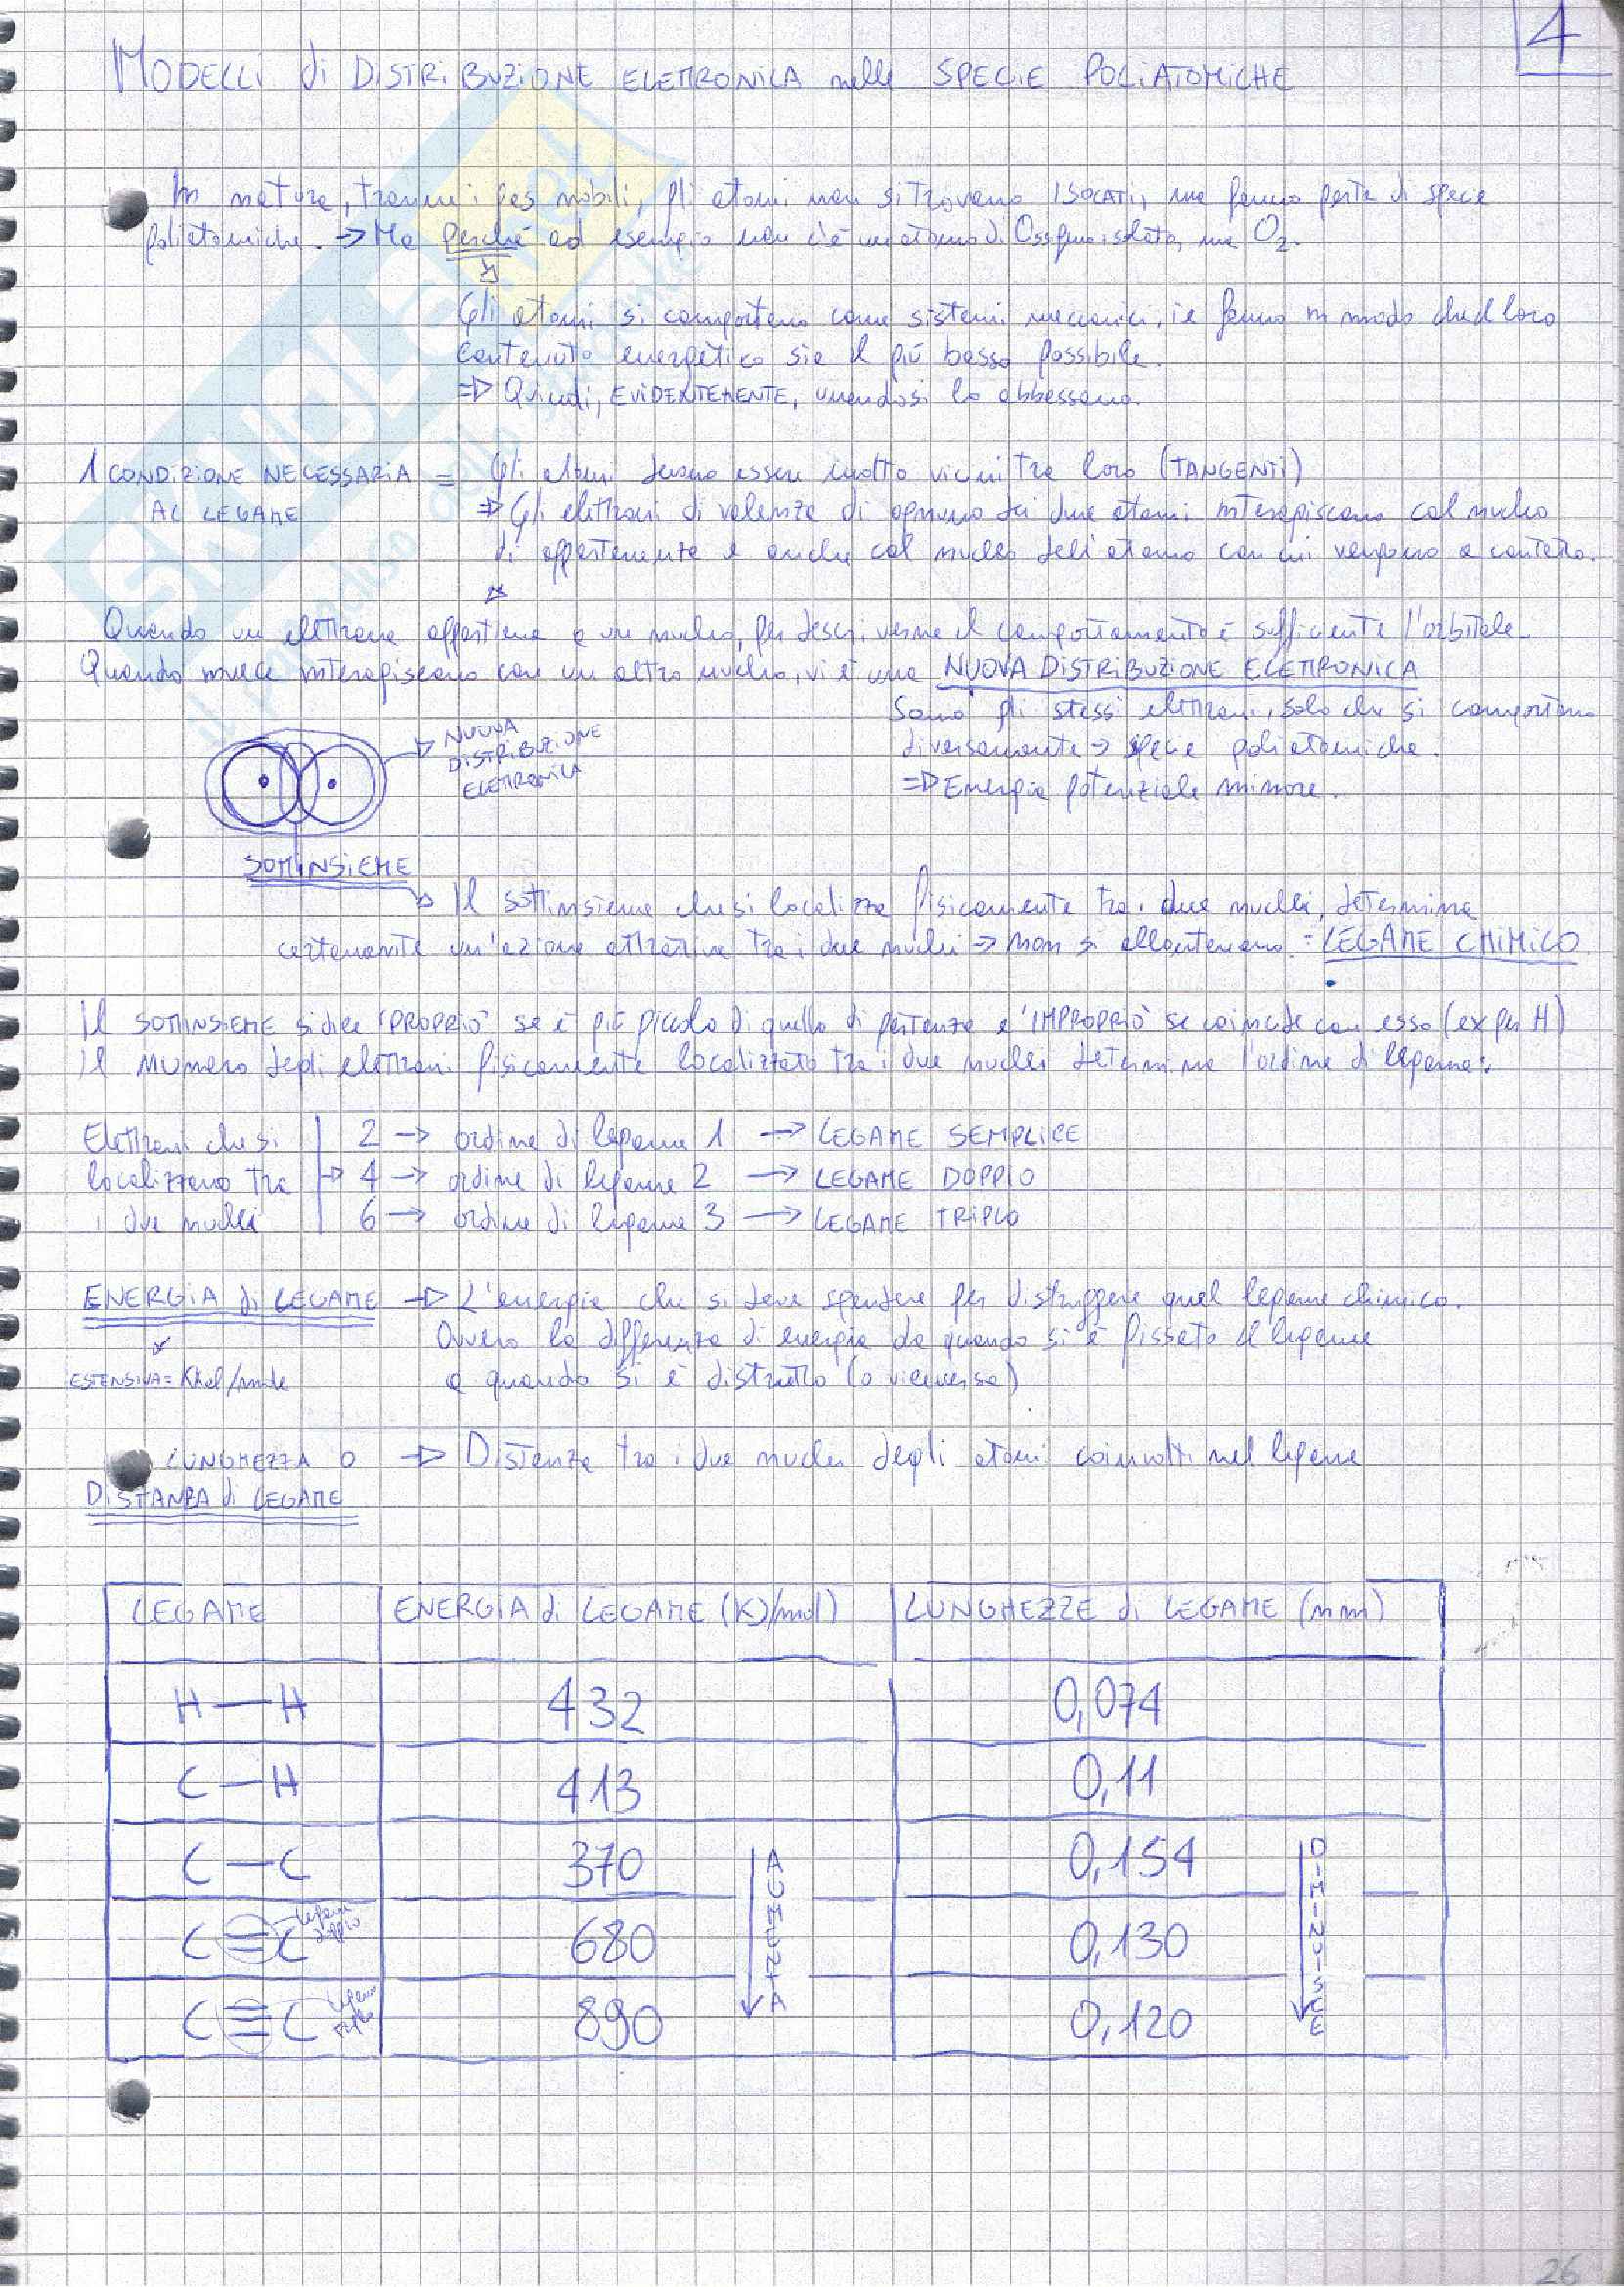 4
MODELLI di DISTRIBUZIONE ELETTRONICA nelle SPECIE POLIATOMICHE
In natura, tranne i gas nobili, gli atomi non si trovano ISOLATI, ma fanno parte di specie
poliatomiche. → Ma perché ad esempio non c'è un atomo di Ossigeno isolato, ma O₂.
Gli atomi si comportano come sistemi meccanici, ie fanno in modo che il loro
contenuto energetico sia il più basso possibile.
⇒ Quindi, EVIDENTEMENTE, unendosi lo abbassano.
1 CONDIZIONE NECESSARIA = Gli atomi devono essere molto vicini tra loro (TANGENTI)
AL LEGAME ⇒ Gli elettroni di valenza di ognuno dei due atomi interagiscono col nucleo
di appartenenza e anche col nucleo dell'atomo con cui vengono a contatto.
Quando un elettrone appartiene a un nucleo, per descriverne il comportamento è sufficiente l'orbitale.
Quando invece interagiscono con un altro nucleo, vi è una NUOVA DISTRIBUZIONE ELETTRONICA
Sono gli stessi elettroni, solo che si comportano
diversamente → specie poliatomiche.
⇒ Energia potenziale minore.
NUOVA
DISTRIBUZIONE
ELETTRONICA
SOTTINSIEME
Il sottinsieme che si localizza fisicamente tra i due nuclei, determina
certamente un'azione attrattiva tra i due nuclei → non si allontanano = LEGAME CHIMICO
Il SOTTINSIEME si dice "PROPRIO" se è più piccolo di quello di partenza e "IMPROPRIO" se coincide con esso (ex per H)
Il numero degli elettroni fisicamente localizzato tra i due nuclei determina l'ordine di legame:
Elettroni che si 2 → ordine di legame 1 → LEGAME SEMPLICE
localizzano tra → 4 → ordine di legame 2 → LEGAME DOPPIO
i due nuclei 6 → ordine di legame 3 → LEGAME TRIPLO
ENERGIA di LEGAME → L'energia che si deve spendere per distruggere quel legame chimico.
Ovvero la differenza di energia da quando si è fissato il legame
ESTENSIVA = Kkal/mole a quando si è distrutto (o viceversa)
LUNGHEZZA O → Distanza tra i due nuclei degli atomi coinvolti nel legame
DISTANZA di LEGAME
LEGAME ENERGIA di LEGAME (KJ/mol) LUNGHEZZE di LEGAME (nm)
H—H 432 0,074
C—H 413 0,11
C—C 370 0,154
C≡C legame doppio 680 0,130
C≡C legame triplo 890 0,120
AUMENTA
DIMINUISCE
26
SKUOLA.net
il paradiso dello studente